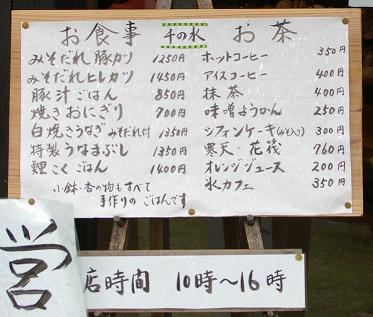 お食事 千の水 お茶
みそだれ豚カツ 1250円
みそだれヒレカツ 1450円
豚汁ごはん 850円
焼きおにぎり 700円
白焼きうなぎ みそだれ付 1350円
特製うなまぶし 1350円
鯉こくごはん 1400円
小鉢・香の物もすべて
手作りのごはんです
ホットコーヒー 350円
アイスコーヒー 400円
抹茶 400円
味噌ようかん 250円
シフォンケーキ(みそ入り) 300円
寒天・花筏 760円
オレンジジュース 200円
氷カフェ 350円
営
店時間 10時～16時